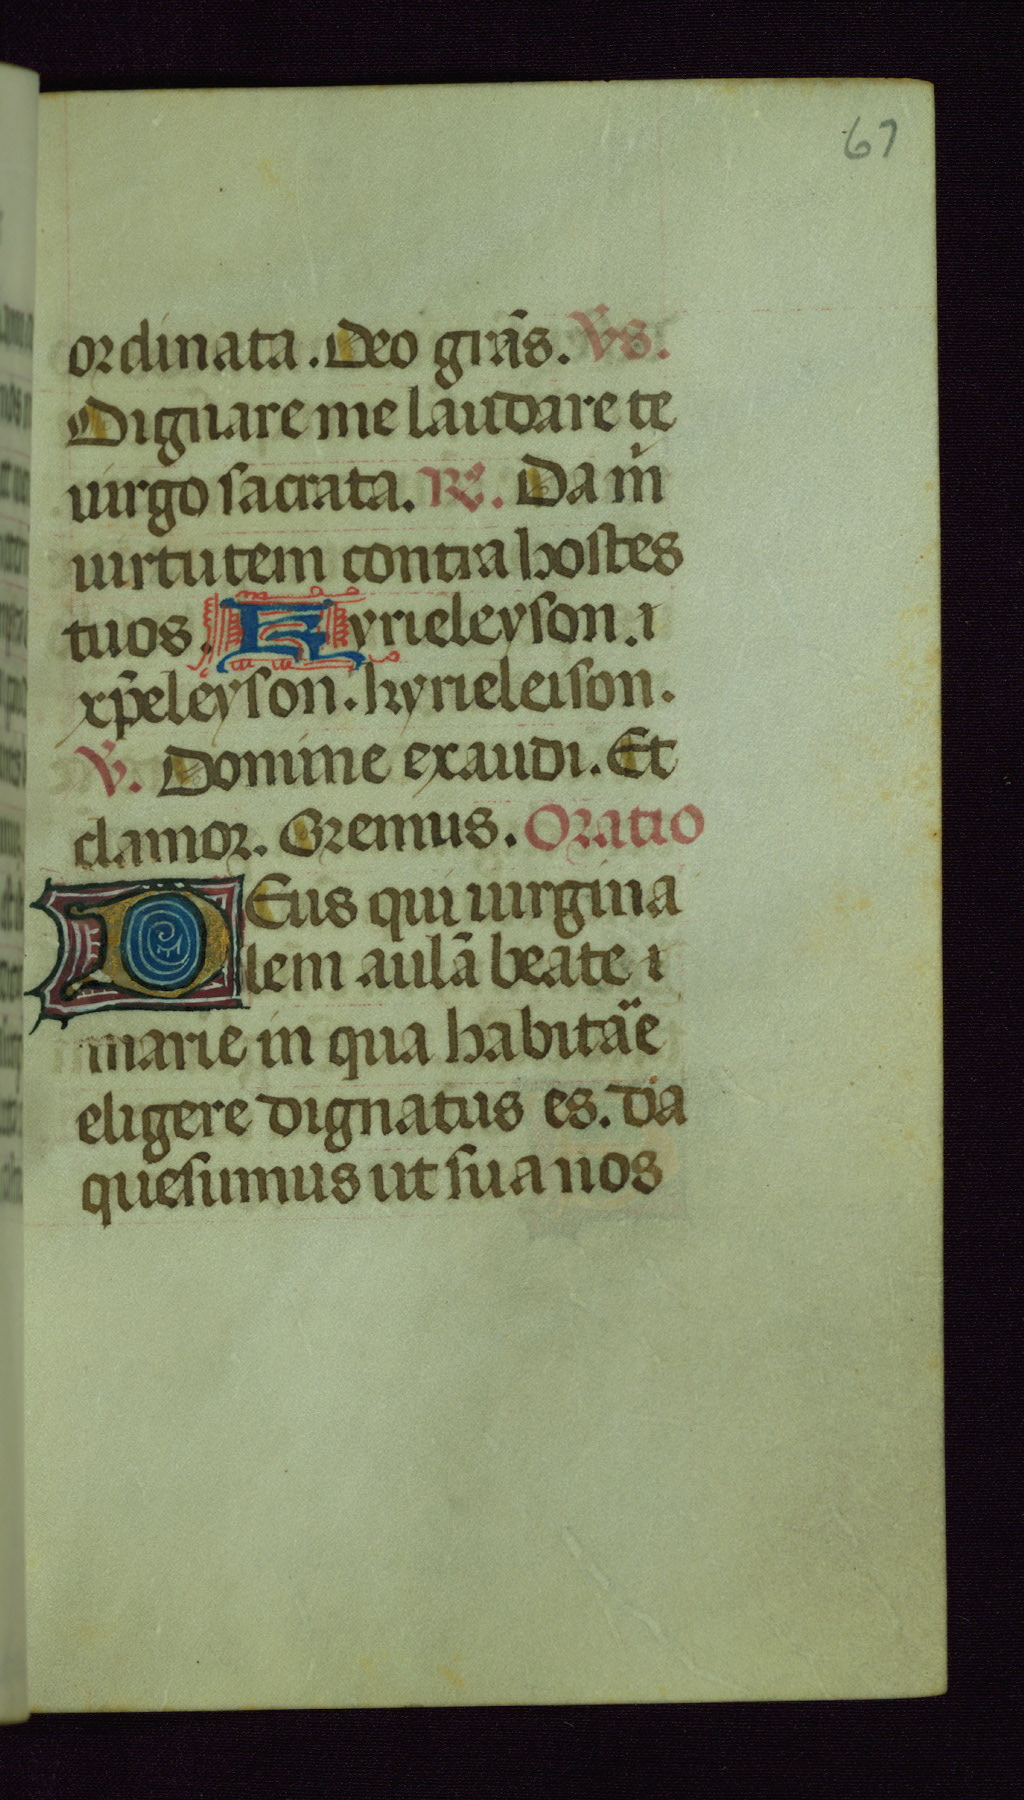 67
ordinata. Deo grās. Vs.
Dignare me laudare te
uirgo sacrata. R. Da m̄
uirtutem contra hostes
tuos. Kyrieleyson. ı
xp̄eleyson. kyrieleison.
V. Domine exaudi. Et
clamor. Oremus. Oratio
DEus qui uirgina
lem aulā beate ı
marie in qua habitäe
eligere dignatus es. da
quesumus ut sua nos